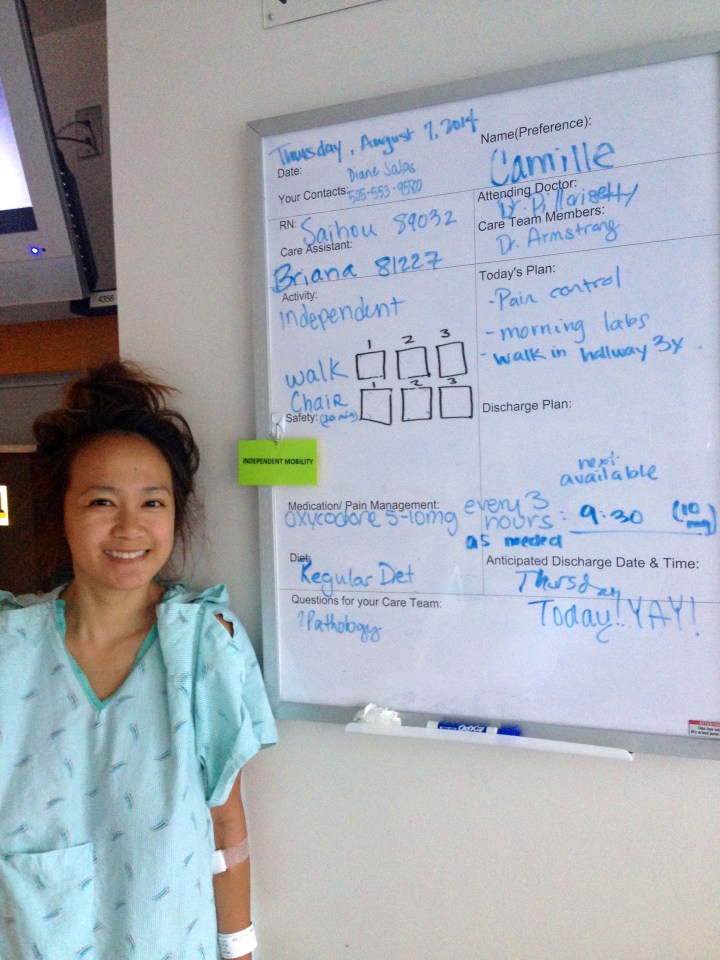 Thursday, August 7, 2014
Date:
Diane Salas
Your Contacts: 505-553-9580
Name(Preference):
Camille
RN: Saihou 89032
Care Assistant:
Briana 81227
Attending Doctor:
Dr. Pillarisetty
Care Team Members:
Dr. Armstrong
Activity:
independent
walk 1 2 3
Chair 1 2 3
Safety: (30 min)
INDEPENDENT MOBILITY
Today's Plan:
- Pain control
- morning labs
- walk in hallway 3x
Discharge Plan:
Medication/ Pain Management:
oxycodone 5-10mg every 3 hours:
as needed
next available
9:30 (10 mg)
Diet:
Regular Diet
Anticipated Discharge Date & Time:
Thursday
Today!! YAY!
Questions for your Care Team:
? Pathology
EXPO
4358